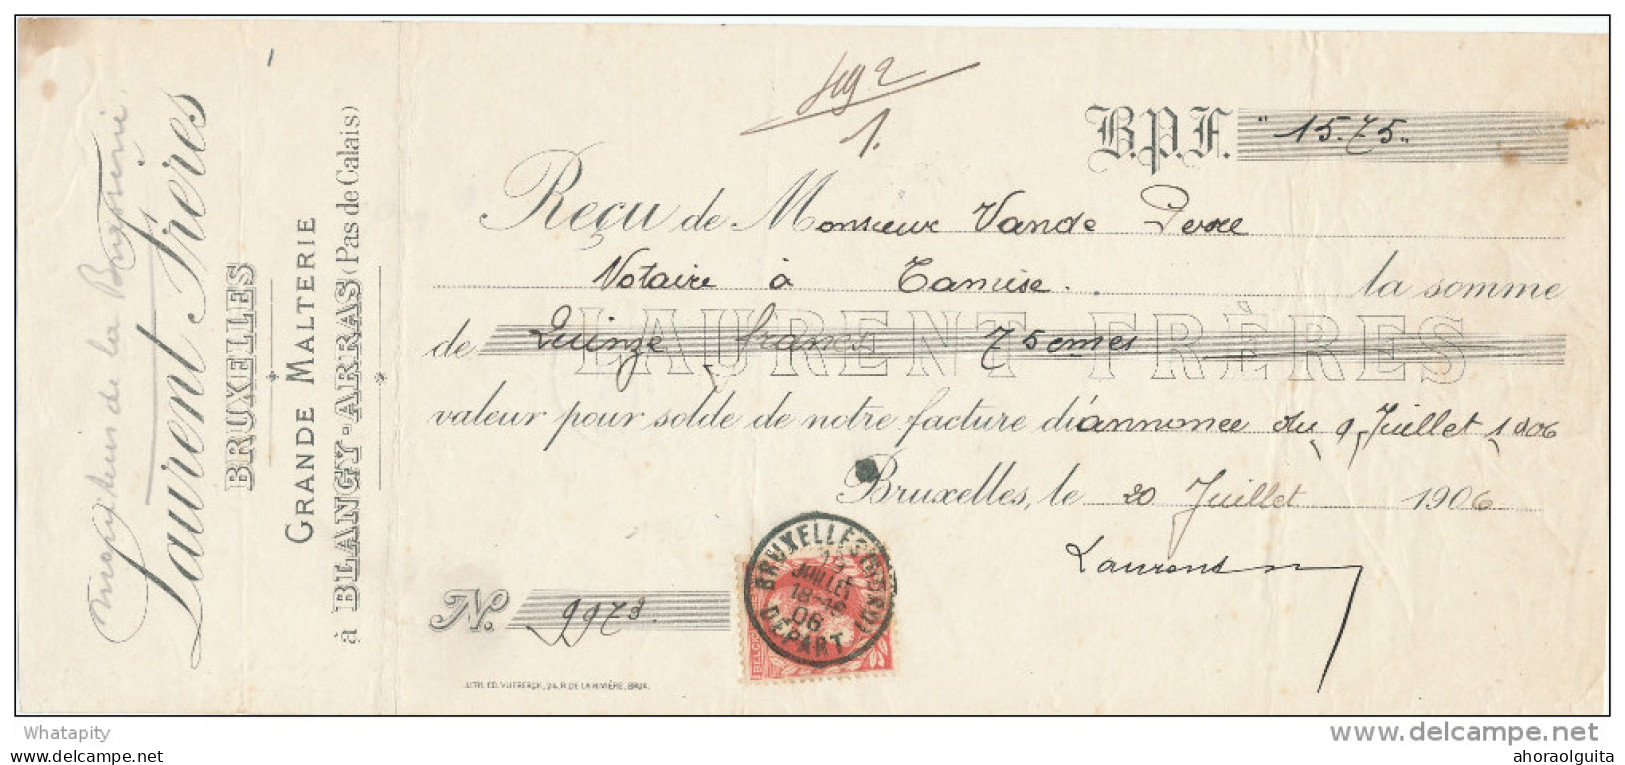 Laurent Frères
BRUXELLES
GRANDE MALTERIE
à BLANGY-ARRAS (Pas de Calais)
1.
B.P.F. " 15.75 "
Reçu de Monsieur Vande
Notaire à Tamise. la somme
LAURENT FRÈRES
de Quinze francs 75 cmes
valeur pour solde de notre facture d'annonce du 9 Juillet 1906
Bruxelles, le 20 Juillet 1906
Laurent
No. 9973.
BRUXELLES
JUILLET
06
DEPART
LITH. ED. 24, R. DE LA RIVIÈRE, BRUX.
Whatapity
www.delcampe.net
(c) Delcampe Luxembourg SA
ahoraolguita